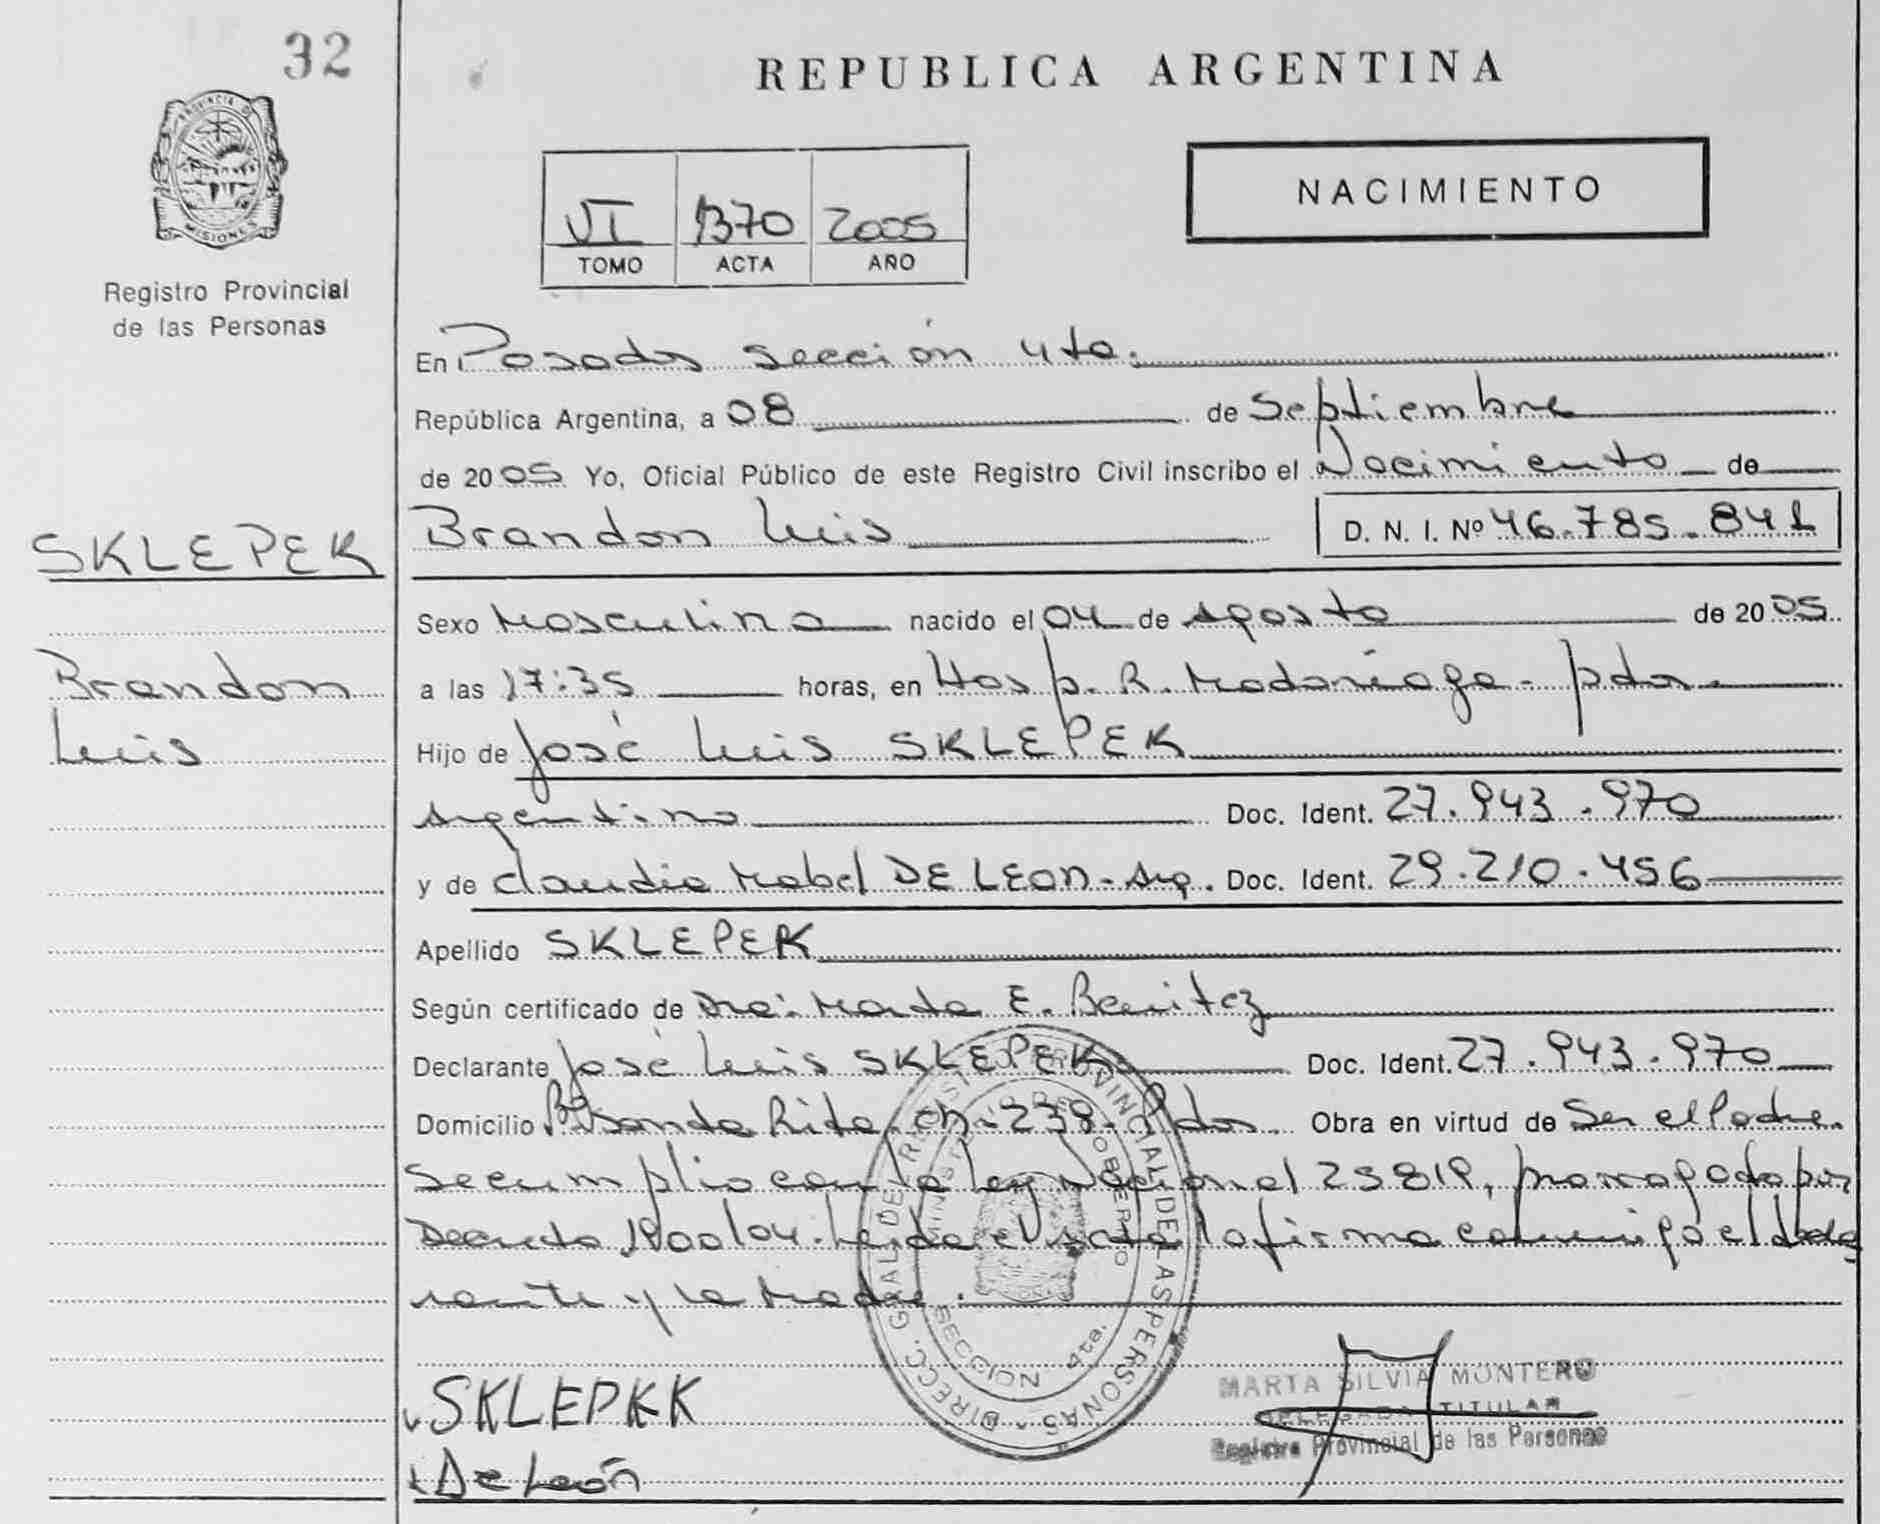 32
REPUBLICA ARGENTINA
PROVINCIA DE
MISIONES
Registro Provincial
de las Personas
VI 1370 2005
TOMO ACTA AÑO
NACIMIENTO
En Posadas sección 4ta.
República Argentina, a 08 de Septiembre
de 2005 Yo, Oficial Público de este Registro Civil inscribo el Nacimiento de
SKLEPEK
Brandon Luis D. N. I. Nº 46.785.841
Sexo Masculino nacido el 04 de Agosto de 2005
Brandon
Luis
a las 17:35 horas, en Hosp. R. Madariaga - pdas.
Hijo de José Luis SKLEPEK
Argentino Doc. Ident. 27.943.970
y de Claudia Mabel DE LEON - Arg. Doc. Ident. 29.210.456
Apellido SKLEPEK
Según certificado de Dra: Marta E. Benitez
Declarante José Luis SKLEPEK Doc. Ident. 27.943.970
Domicilio Bº Santa Rita ch. 238 - Pdas. Obra en virtud de Ser el Padre.
Se cumplio con la ley Nacional 25819, prorrogado por
Decreto 1900/04. Leida el acta la firma conmigo el decla
rante y la madre.
DIRECC. GRAL DEL REGISTRO PROVINCIAL DE LAS PERSONAS
MINISTERIO DE GOBIERNO
SECCION 4ta.
SKLEPKK
De León
MARTA SILVIA MONTERO
DELEGADA TITULAR
Registro Provincial de las Personas